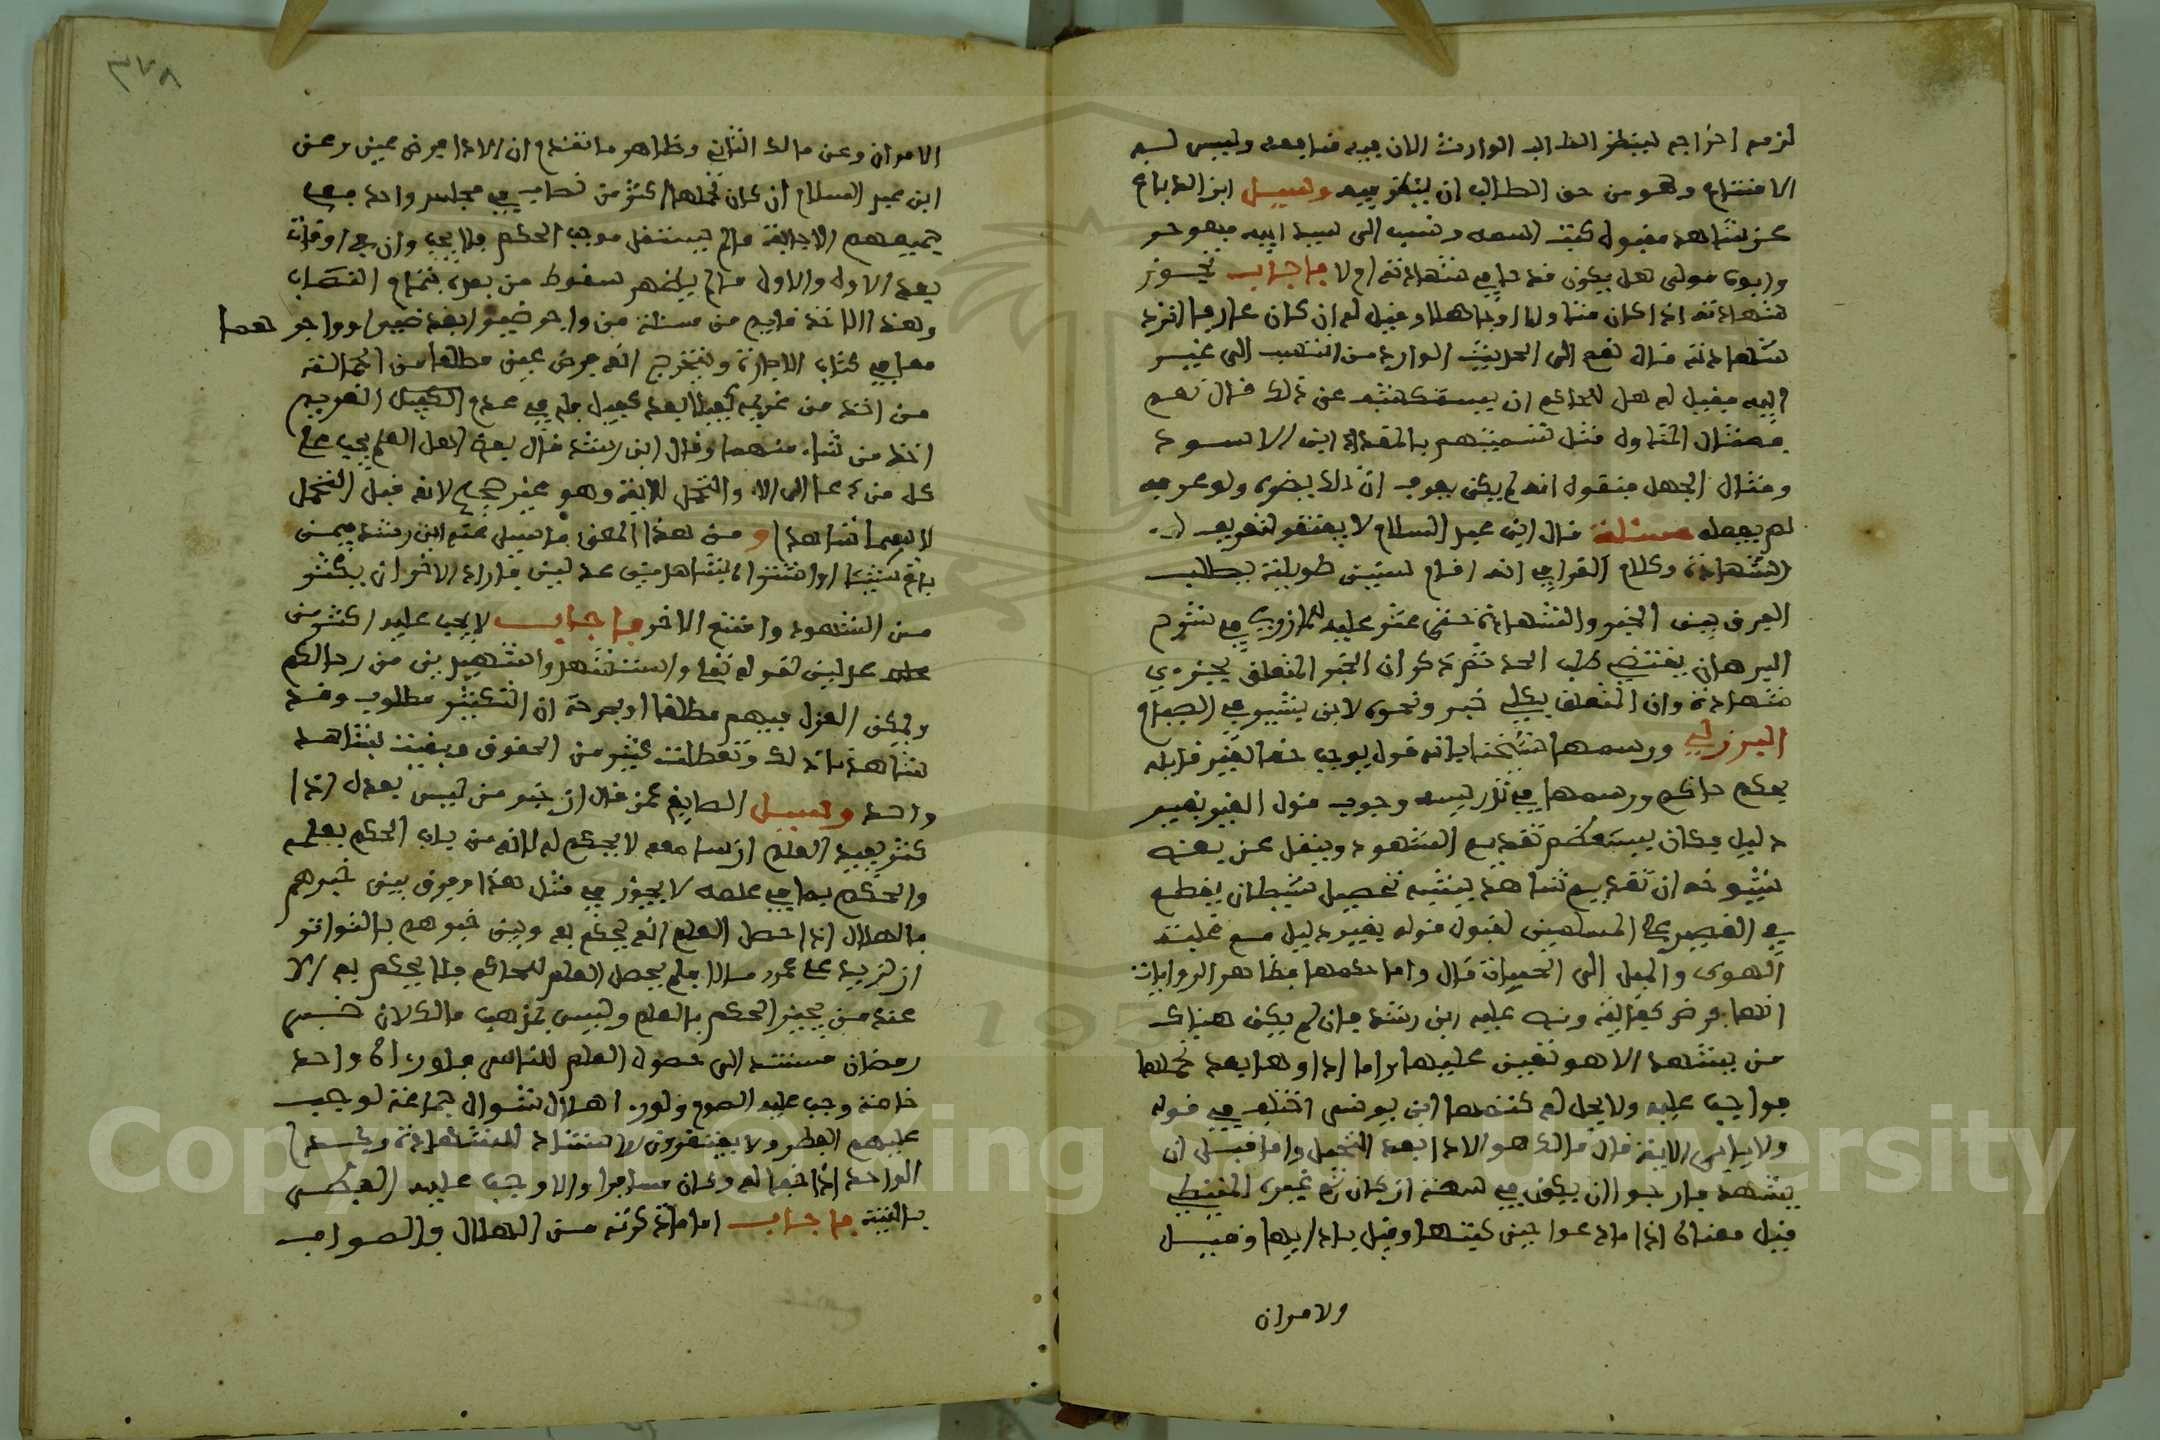 لزمه اخراجه لينظر الطالب الوارث الان فيه منافعه وليس لـه
الا متناع وهو من حق الطالب ان ينظر فيه وسيـل ابن الدباغ
عن شاهد مقبول كتب اسمه ونسب الى سيد ابيه فهو حر
وابوه مولى هل يكون قدحا في شهادته ام لا فاجاب تجـوز
شهادته اذا كان متاولا او جاهلا وقيل له ان كان عارفا اترد
شهادته قال نعم الى الحديث الوارد من انتسب الى غيـر
ابيه فقيل له هل للحاكم ان يستكشفه عن ذلك قال نعم
فمثال المتاول مثل تسميتهم بالمقداد ابن الاسـود
ومثال الجهل فيقول انه لم يكن يعرف ان ذلك يضره ولو عرفه
لم يفعله مسئلة قال ابن عبد السلام لا يفتقر لتعريف
الشهادة وكلام القرافي انه اقام سنين طويلة يطلب
الفرق بين الخبر والشهادة حتى عثر عليه للمازري في شرح
البرهان يقتضي طلب الحد ثم ذكر ان الخبر المتعلق بجزءي
شهادة وان المتعلق بكلي خبر ونحوه لابن بشير في الصيام
البرزلي ورسمها شيخنا بانه قول يوجب حقا لغير قايله
يحكم حاكم ورسمها في تدريسه وجوب قول الغير بغير
دليل فكان يستعظم تقديم الشهود وينقل عن بعض
شيوخه ان تقديم شاهد يشبه تحصيل شيطان يقطع
في القصر على المسلمين لقبول قوله بغير دليل مع غلبة
الهوى والميل الى الحياة قال واما حكمها فظاهر الروايات
انها فرض كفاية ونص عليه ابن رشد فان لم يكن هناك
من يشهد الا هو تعين عليه واما اداوها بعد تحملها
فواجب عليه ولا يحل له كتمها ابن يونس اختلف في قوله
ولا ياب الاية قال مالك هو الاداء بعد التحمل واما قبل ان
يشهد فارجو ان يكون في سعة ان كان ثم غيره المتيطي
قيل معناه اذا ما دعوا حين كتبها وقيل بادايها وقيـل
الامران
٣٧٨
الامران وعن مالك الثاني وظاهر ما تقدم ان الاداء فرض عين وعن
ابن عبد السلام ان كان تحملها اكثر من نصاب في مجلس واحد ففي
جميعهم الاجابة ما لم يستقل موجب الحكم فلا يجب وان في اوقات
فعلى الاول والاول ما لم يظهر سقوط من بعده بتمام النصاب
وهذا الاخذ قايم من مسئلة من واجر ظيرا بعد ظير او واجر هما
معا في كتاب الاجارة ويتخرج انه فرض عين مطلقا من الحمالـة
من اخذ من غريمه كفيلا بعد كفيل فله في عدم الكفيل الغريم
اخذ من شاء منهما وقال ابن رشد قال بعض اهل العلم يجب على
كل من دعا الى الاداء والتحمل للاية وهو غير صحيح لانه قبل التحمل
لا يسما شاهدا ومن هذا المعنى ما سيل عنه ابن رشد فيمن
باع شيئا او اشتراه بشاهدين عدلين فاراد الاخر ان يكثر
من الشهود وامتنع الاخر فاجاب لا يجب عليه اكثر من
عدلين لقوله تعا واستشهدوا شهيدين من رجالكم
ويمكن العزل فيهم مطلقا او بجرحة ان التكثير مطلوب وقـد
شاهدنا ذلك وتعطلت كثير من الحقوق وبقيت بشاهـد
واحد وسيـل الصايغ عمن قال ان خبر من ليس بعدل اذا
كثر يفيد العلم ان سامعه لا يحكم له لانه من باب الحكم بعلمه
والحكم بما في علمه لا يجوز في مثل هذا وفرق بين خبرهم
بالهلال اذا حصل العلم انه يحكم به وبين خبرهم بالتواتر
ان لزيد على عمرو مالا فلم يحصل العلم للحاكم فلا يحكم به الا
عند من يجيز الحكم بالعلم وليس بمذهب مالك لان حبـس
رمضان مستند الى حصول العلم للناس فلو راه واحد
خاصة وجب عليه الصوم ولو را هلال شوال جماعة لوجب
عليهم الفطر ولا يفتقرون لاستناد للشهادة وكـذا
الواحد اذا خفا له وكان مسافرا والا وجب عليه الفطـر
بالنية فاجاب اما ما ذكرته من الهلال فالصواب